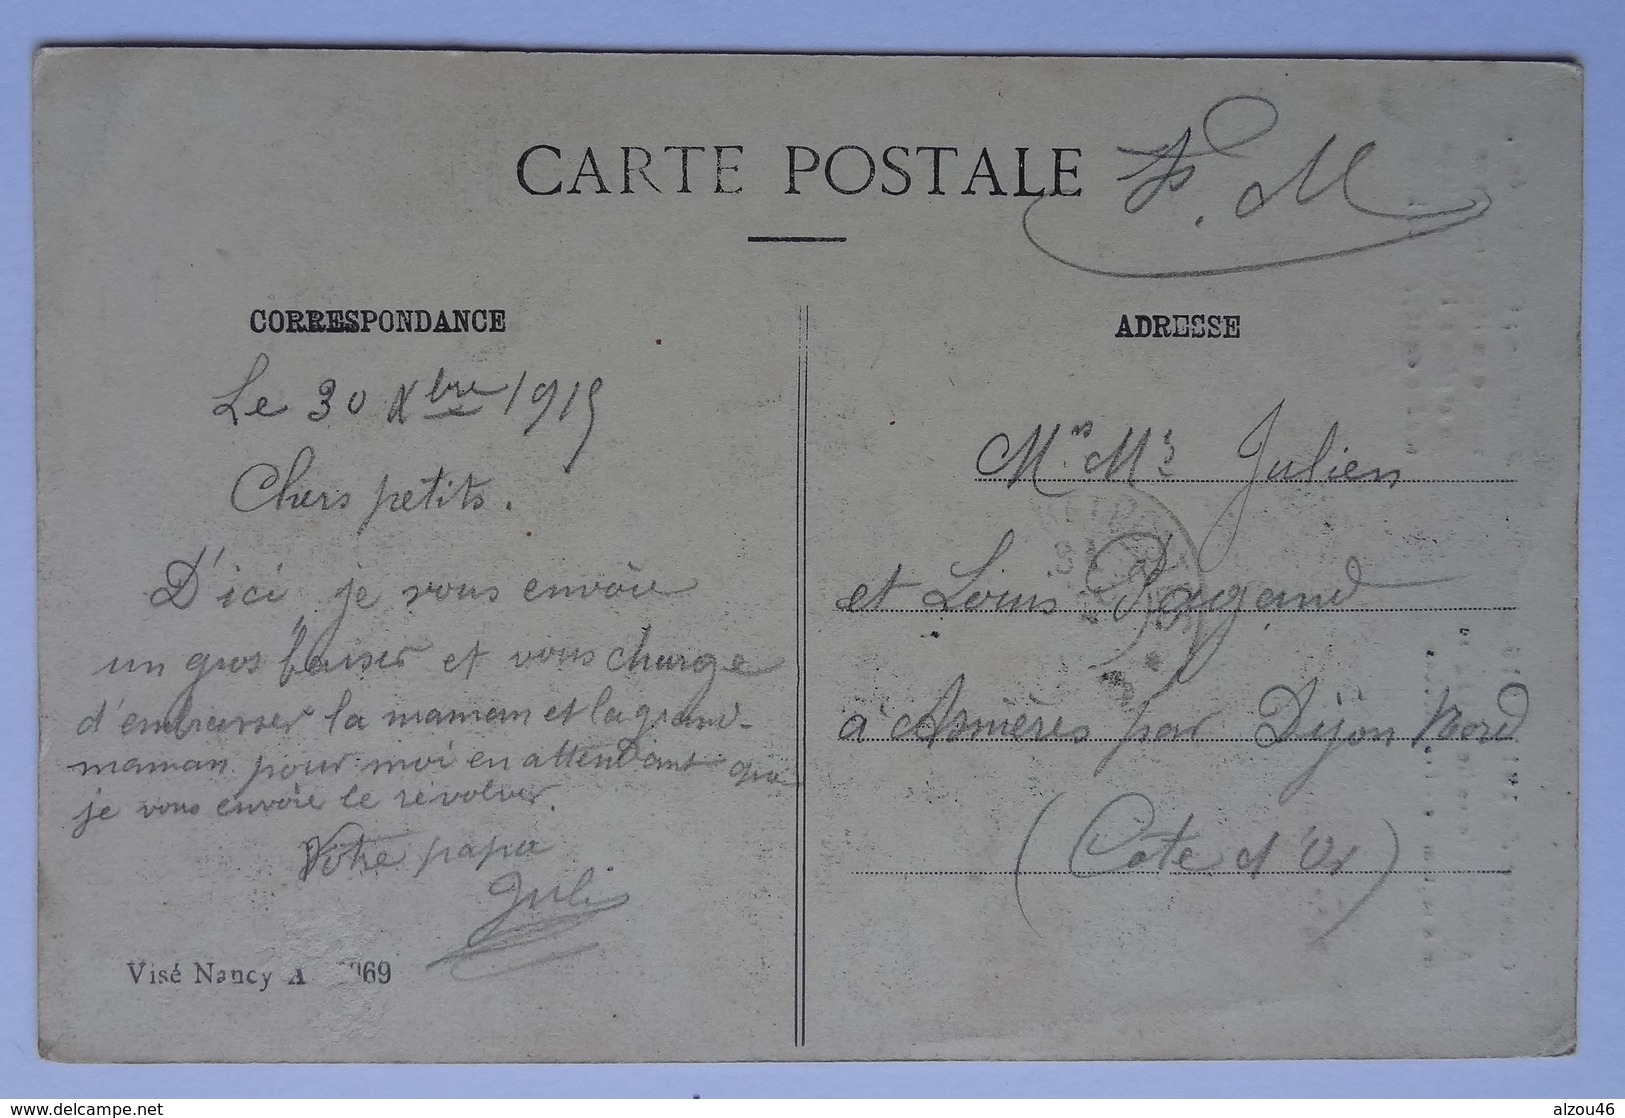 CARTE POSTALE
F. M
CORRESPONDANCE
Le 30 Xbre 1915
Chers petits.
D'ici je vous envoie
un gros baiser et vous charge
d'embrasser la maman et la grand-
maman pour moi en attendant que
je vous envoie le révolver.
Votre papa
Juli
Visé Nancy A 969
ADRESSE
Mrs. Mrs Julien
et Louis Pagand
à Asnières par Dijon Nord
(Cote d'Or)
delcampe.net
alzou46